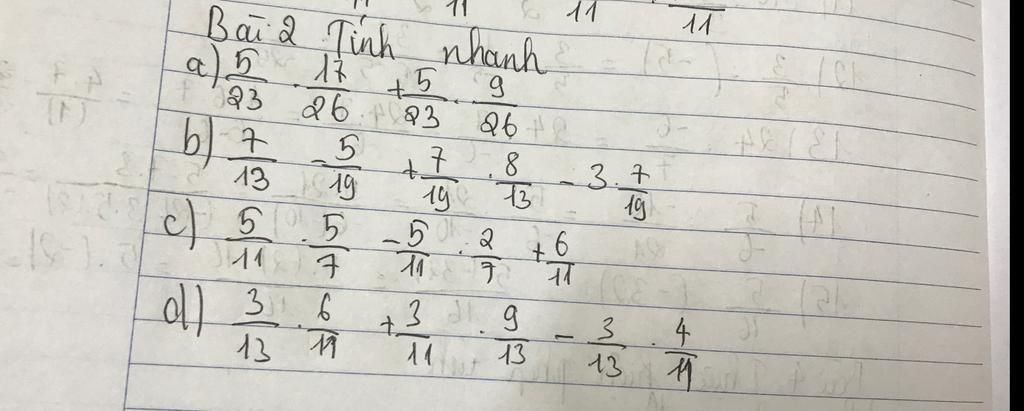 11 11 11 11
Bài 2 Tính nhanh
a) 5/23 . 17/26 + 5/23 . 9/26
b) 7/13 - 5/19 + 7/19 . 8/13 - 3 . 7/19
c) 5/11 . 5/7 - 5/11 . 2/7 + 6/11
d) 3/13 . 6/11 + 3/11 . 9/13 - 3/13 . 4/11